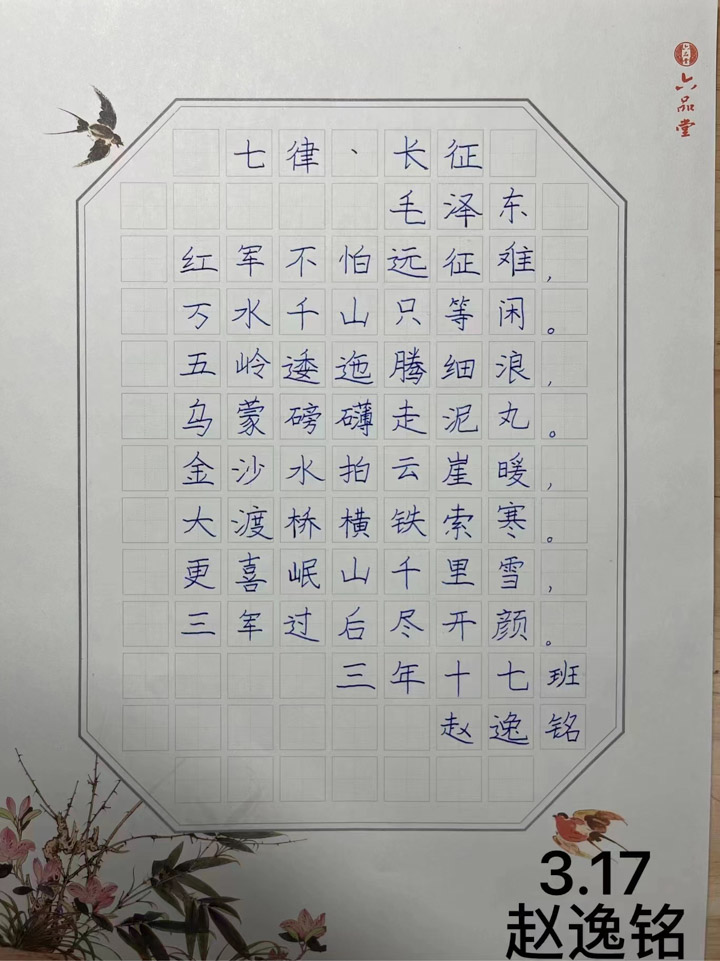 六品堂
七律、长征
毛泽东
红军不怕远征难，
万水千山只等闲。
五岭逶迤腾细浪，
乌蒙磅礴走泥丸。
金沙水拍云崖暖，
大渡桥横铁索寒。
更喜岷山千里雪，
三军过后尽开颜。
三年十七班
赵逸铭
3.17
赵逸铭